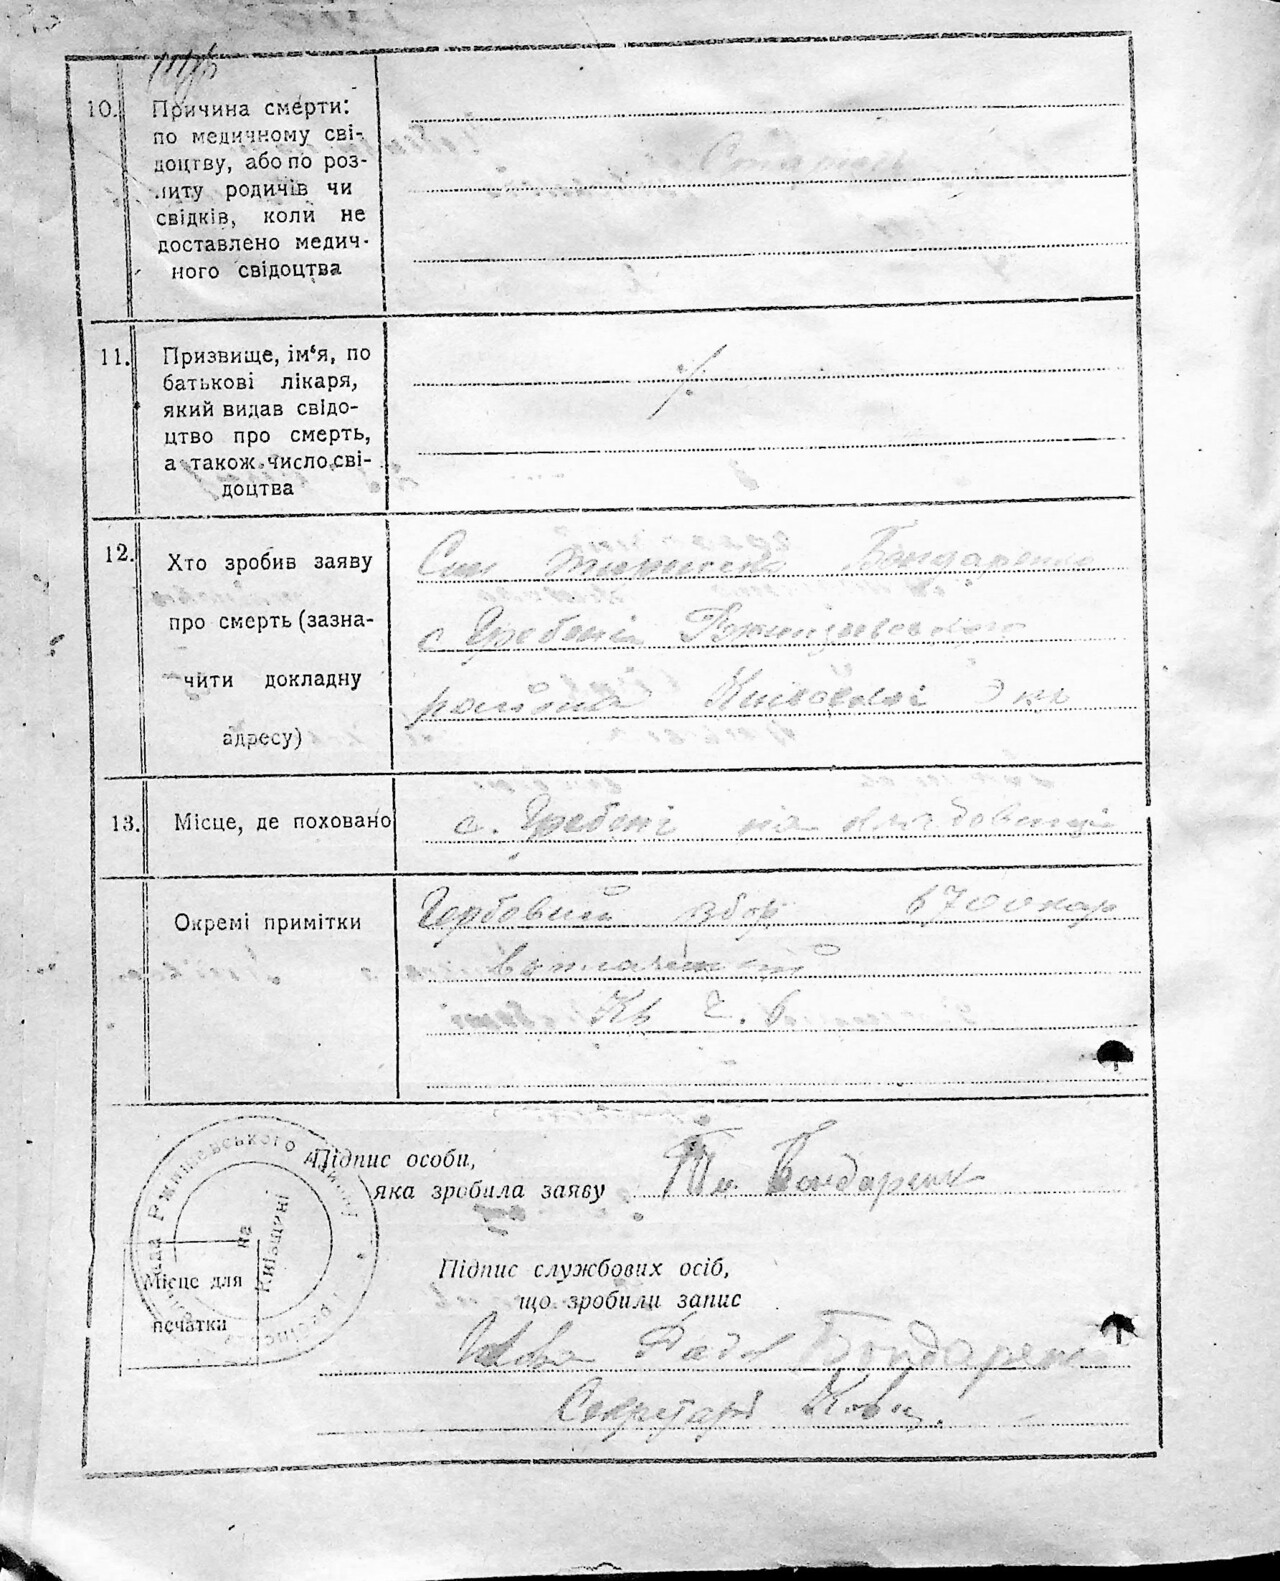 10.
Причина смерти:
по медичному сві-
доцтву, або по роз-
питу родичів чи
свідків, коли не
доставлено медич-
ного свідоцтва
Старість
11.
Призвище, ім‘я, по
батькові лікаря,
який видав свідо-
цтво про смерть,
а також число сві-
доцтва
12.
Хто зробив заяву
про смерть (зазна-
чити докладну
адресу)
Син Бондаренко
с Гребені Ржищівського
района Київської Окр
13.
Місце, де поховано
с. Гребені на кладовищі
Окремі примітки
Гербовий збор 6700 кар
Кв Ч. 6
Підпис особи,
яка зробила заяву
Бондаренк
Ржищевського району
на
Київщині
Місце для
печатки
Підпис службових осіб,
що зробили запис
Голова Ради Бондаренко
Секретарь